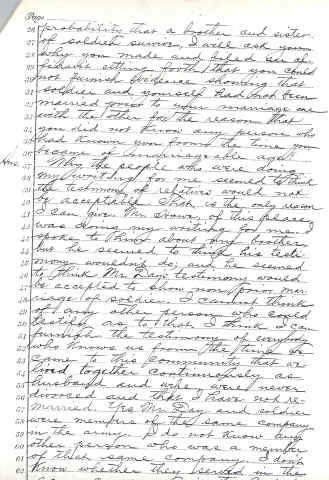 Page
26 probability that a brother and sister
27 of soldier survive, I will ask you
28 why you made and filed an af-
29 fidavit setting forth that you could
30 not furnish evidence showing that
31 soldier and yourself had not been
32 married prior to your marriage one
33 with the other for the reason that
34 you did not know any person who
35 had known you from the time you
36 became of marriageable age?
Ans. 37 Why the people who were doing
38 my writing for me seemed to think
39 the testimony of relatives would not
40 be acceptable. That is the only reason
41 I can give. Mr. of this place,
42 was doing my writing for me. I
43 spoke to him about my brother,
44 but he seemed to think his testi-
45 mony wouldn't do; and he seemed
46 to think Mr. Day's testimony would
47 be accepted to show non prior mar-
48 riage of soldier. I cannot think
49 of any other person who could
50 testify as to that. I think I can
51 furnish the testimony of everybody
52 who knows us from the time we
53 came to this community that we
54 lived together continuously as
55 husband and wife, were never
56 divorced and that I have not re-
57 married. Yes Mr. Day and soldier
58 were members of the same company
59 in the army. I do not know any
60 other person who was a member
61 of that same company. I don't
62 know whether they served in the